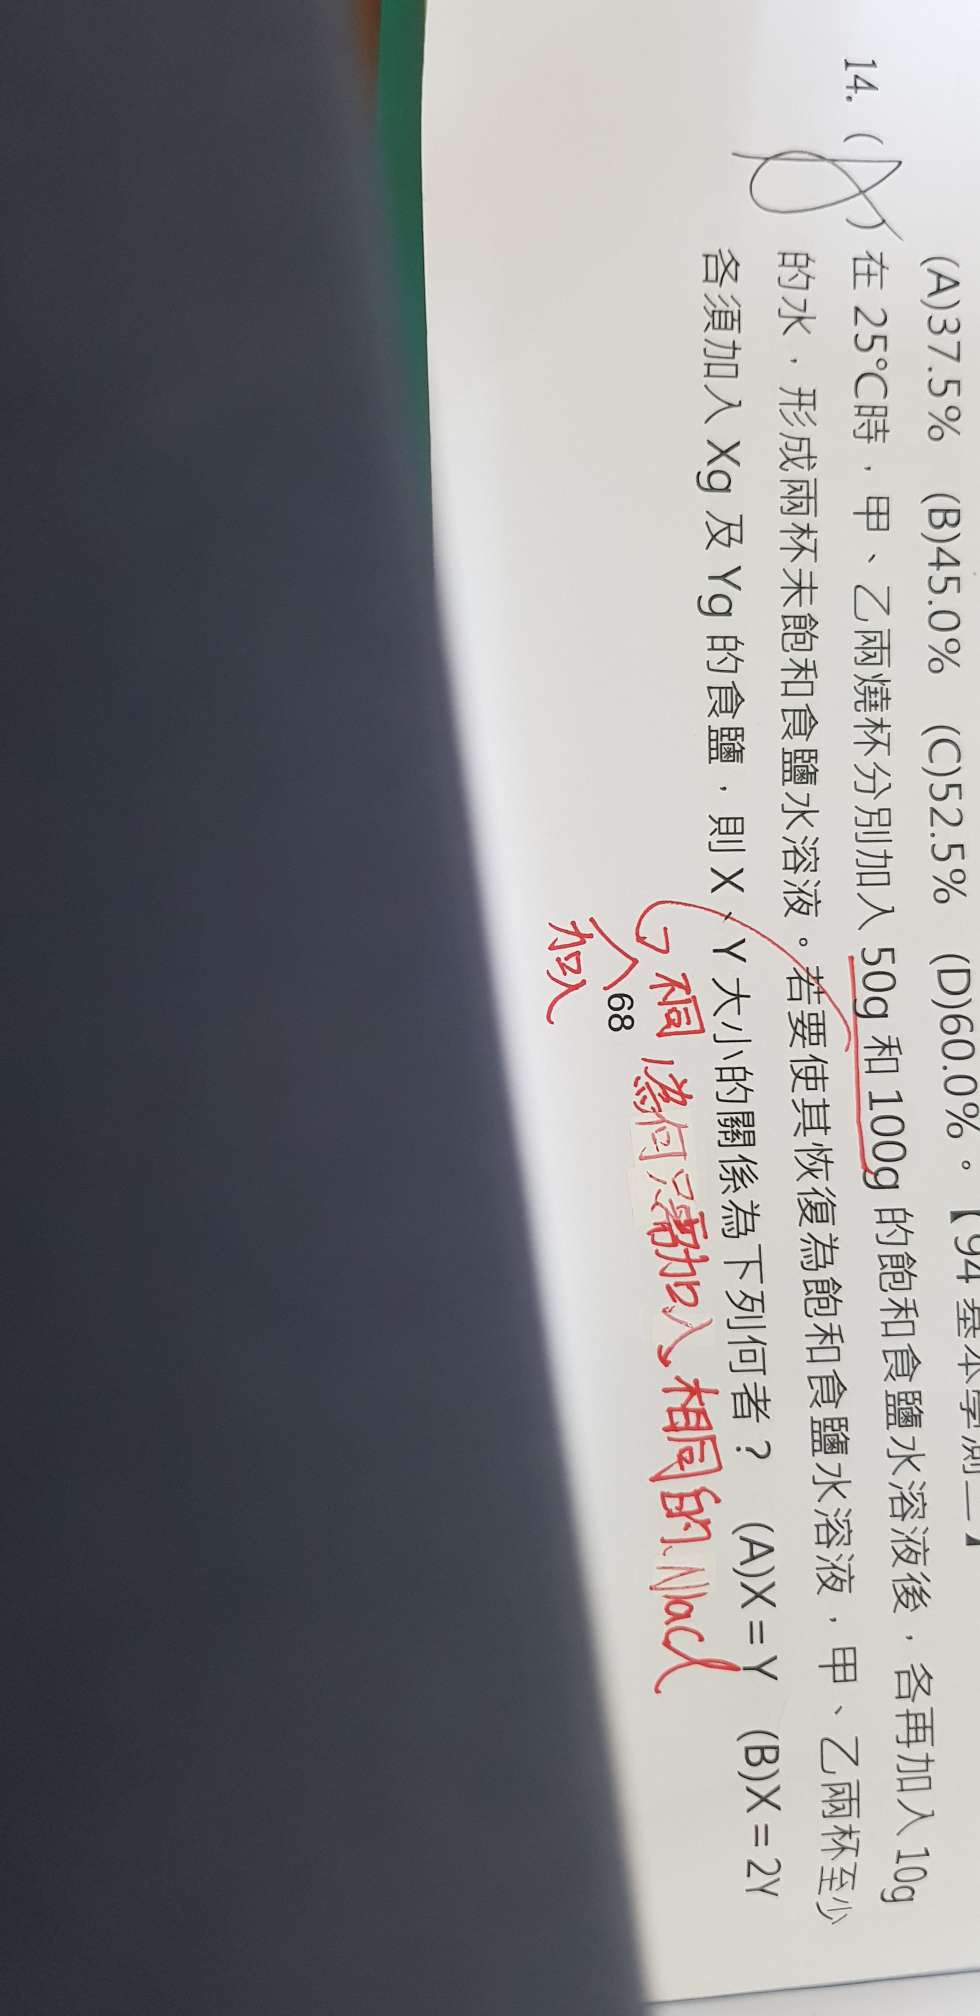 (A)37.5% (B)45.0% (C)52.5% (D)60.0%。【94 基本學測二】
14. ( A ) 在 25℃時,甲、乙兩燒杯分別加入 50g 和 100g 的飽和食鹽水溶液後,各再加入 10g
的水,形成兩杯未飽和食鹽水溶液。若要使其恢復為飽和食鹽水溶液,甲、乙兩杯至少
各須加入 Xg 及 Yg 的食鹽,則 X、Y 大小的關係為下列何者? (A)X=Y (B)X=2Y
為何只需加入相同的 NaCl
68
加入